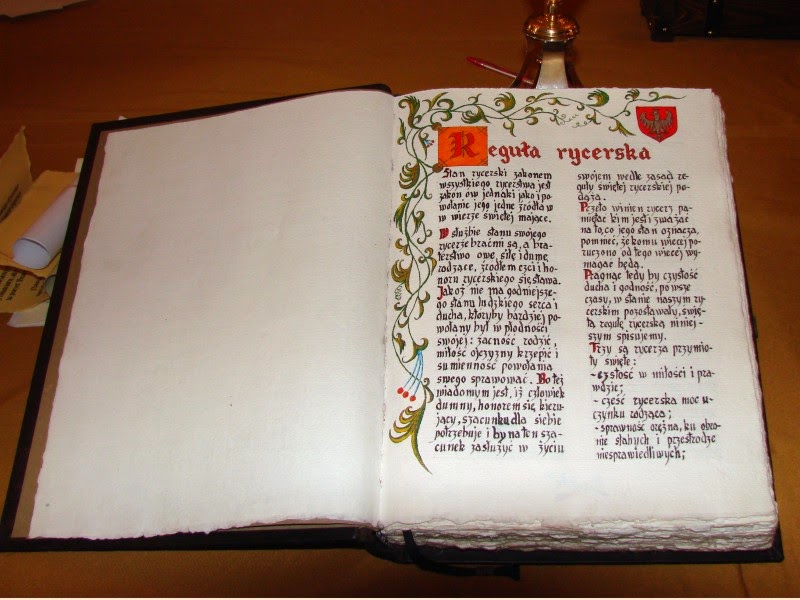 Reguła rycerska
Stan rycerski zakonem
wszystkiego rycerstwa jest
zakon ów jednaki jako i po-
wołanie jego jedne źródła w
w wierze świętej mające.
W służbie stanu swojego
rycerze braćmi są, a bra-
terstwo owe siłę i dumę
rodzące, źródłem czci i ho-
noru rycerskiego się stawa.
Jakoż nie ma godniejsze-
go stanu ludzkiego serca i
ducha, któryby bardziej po-
wołany był w płodności
swojej: zacność rodzić,
miłość ojczyzny krzepić i
sumienność powołania
swego sprawować. Bo też
wiadomym jest, iż człowiek
dumny, honorem się kieru-
jący, szacunku dla siebie
potrzebuje i by na ten sza-
cunek zasłużyć w życiu
swojem wedle zasad re-
guły świętej rycerskiej po-
dąża.
Przeto winien rycerz pa-
miętać kim jest i zważać
na to, co jego stan oznacza,
pomnieć, że komu więcej po-
ruczono od tego więcej wy-
magać będą.
Pragnąc tedy by czystość
ducha i godność, po wsze
czasy, w stanie naszym ry-
cerskim pozostawały, świę-
tą regułę rycerską niniej-
szym spisujemy.
Trzy są rycerza przymio-
ty święte:
- czstość w miłości i pra-
wdzie;
- cześć rycerska moc u-
czynku rodząca;
- sprawność orężna, ku obro-
nie słabych i przestrodze
niesprawiedliwych;